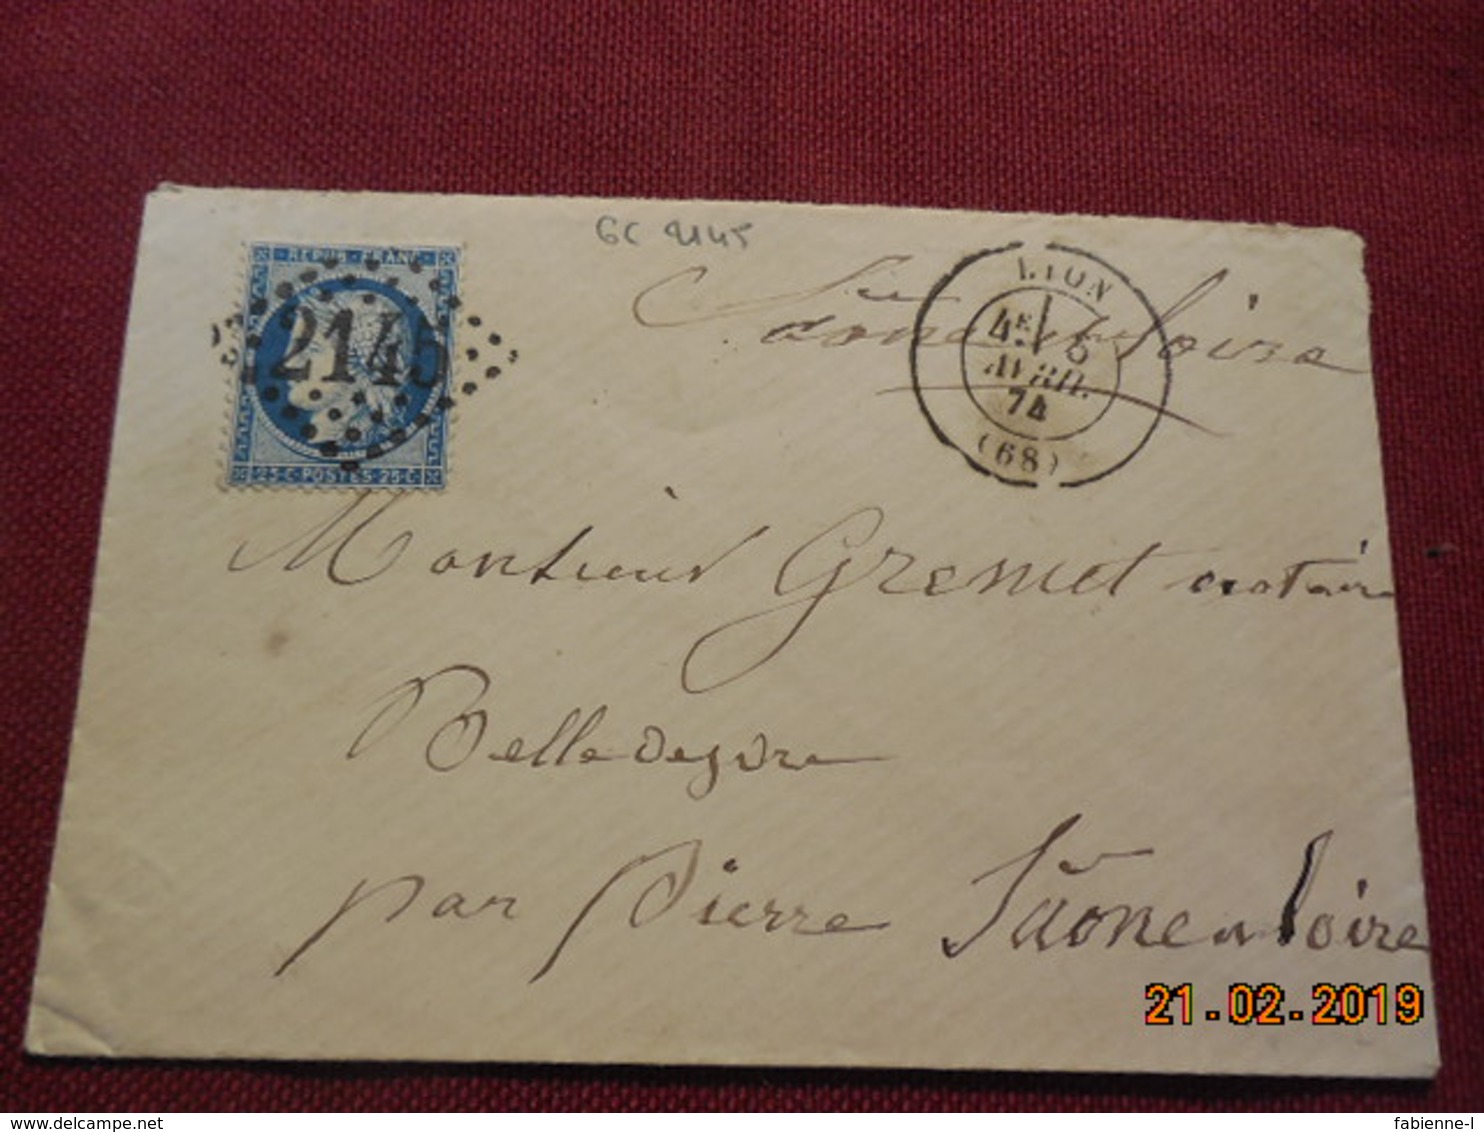 GC 2145
REPUB · FRANC
2145
25 · C · POSTES · 25 · C
LYON
4E 5
AVRIL
74
(68)
Saone et Loire
Monsieur Gremet notaire
Belledesvre
par Pierre Saone et Loire
21.02.2019
delcampe.net
fabienne-l